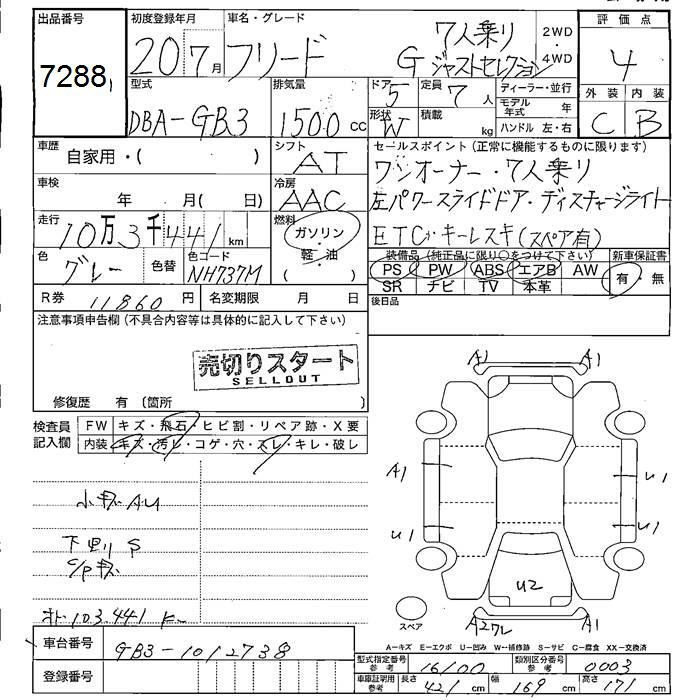 出品番号 初度登録年月 車名・グレード 評価点
7288 20 7月 フリード 7人乗り 2WD・4WD 4
G ジャストセレクション
型式 排気量 ドア 定員 ディーラー・並行 外装 内装
DBA-GB3 1500cc 5 7人 モデル年式 年 C B
形状 W 積載 kg ハンドル 左・右
車歴 自家用・( ) シフト AT セールスポイント(正常に機能するものに限ります)
ワンオーナー・7人乗り
車検 年 月( 日) 冷房 AAC 左パワースライドドア・ディスチャージライト
走行 10万3千441km 燃料 ガソリン・軽・油( ) ETC・キーレスキ(スペア有)
色 グレー 色替 色コード NH737M 装備品(純正品に限り○をつけて下さい) 新車保証書
PS PW ABS エアB AW 有・無
SR ナビ TV 本革
R券 11860円 名変期限 月 日 後日品
注意事項申告欄(不具合内容等は具体的に記入して下さい)
売切りスタート
SELLOUT
修復歴 有(箇所 )
検査員記入欄 FW キズ・飛石・ヒビ割・リペア跡・X要
内装 キズ・汚レ・コゲ・穴・スレ・キレ・破レ
A1 A1
A1 U1
U1 U1
U2
小キズ AU
下廻り S
C/Pキズ
オト 103.441 K
スペア A2ワレ A1
A-キズ E-エクボ U-凹み W-補修跡 S-サビ C-腐食 XX-交換済
車台番号 GB3-1012738
型式指定番号 参考 16100 類別区分番号 参考 0003
登録番号 車庫証明用 参考 長さ 421cm 幅 169cm 高さ 171cm